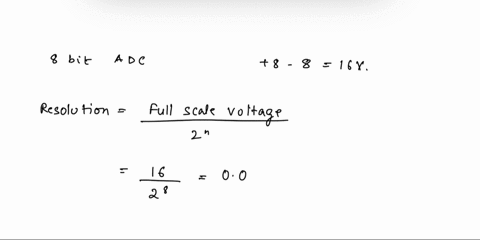 8 bit ADC +8 - 8 = 16V.
Resolution = Full scale voltage / 2^n
= 16 / 2^8 = 0.0